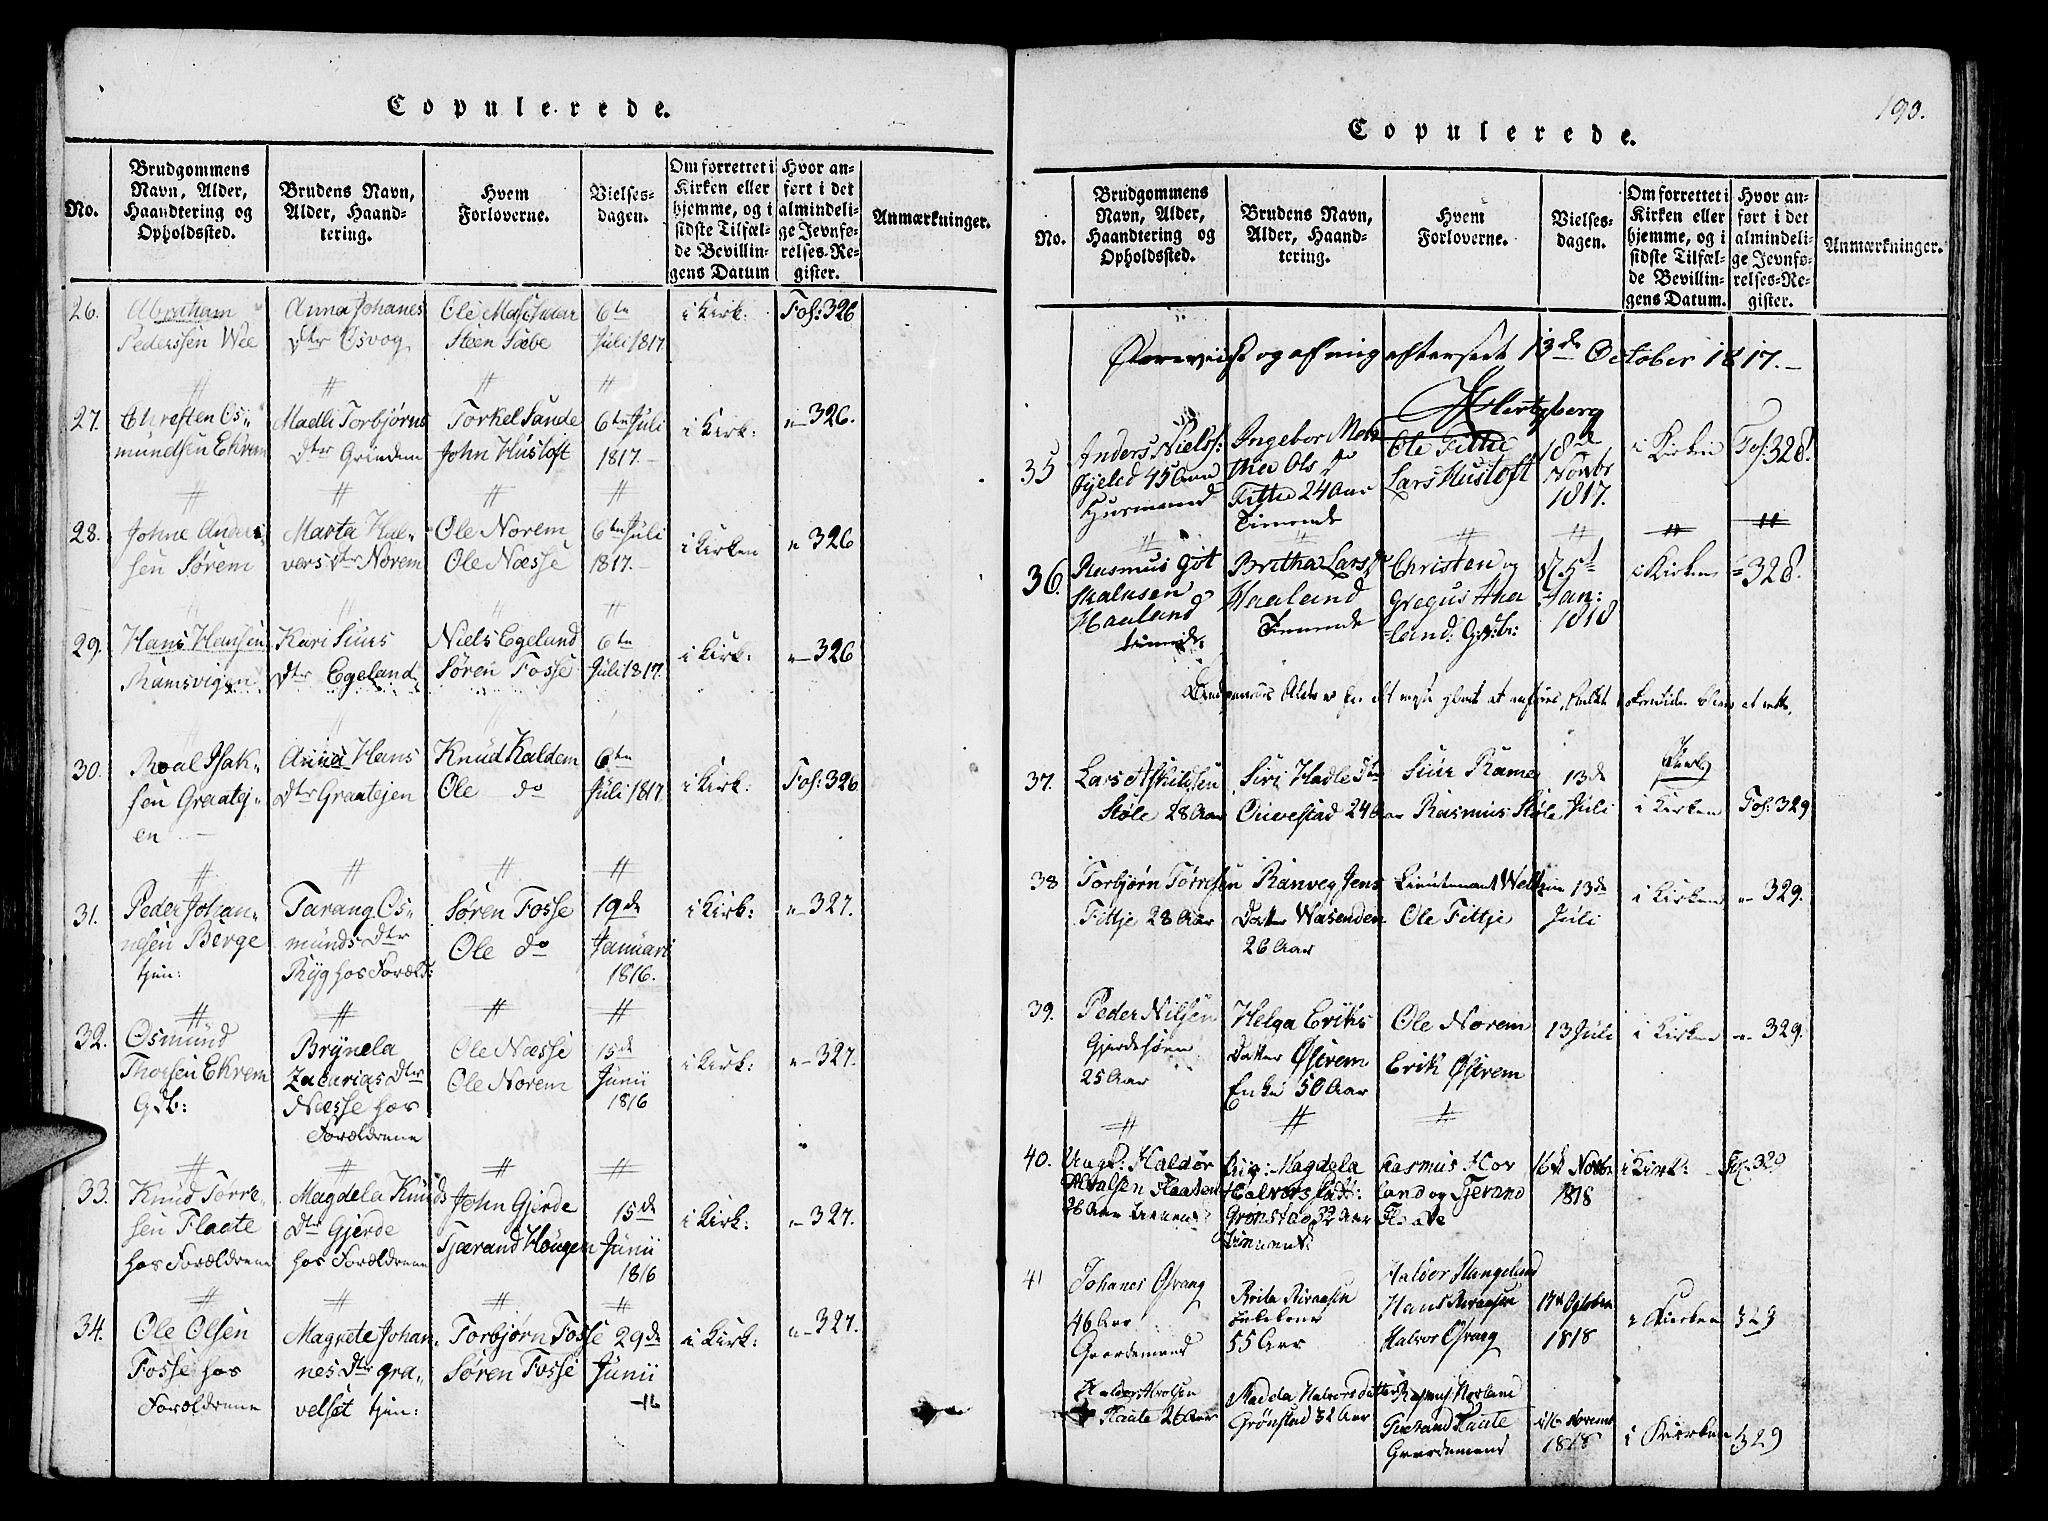 Copulerede.
No.
Brudgommens
Navn, Alder,
Haandtering og
Opholdssted.
Brudens Navn,
Alder, Haand-
tering.
Hvem
Forloverne.
Vielses-
dagen.
Om forrettet i
Kirken eller
hjemme, og i
sidste Tilfæl-
de Bevillin-
gens Datum
Hvor an-
ført i det
almindeli-
ge Jevnfø-
relses-Re-
gister.
Anmærkninger.
26.
Abraham
Pederssen Wee
Anna Johanes
Dtr Osvog
Ole
Steen Sæbe
6te
Juli 1817
i Kirk:
Fol: 326
27.
Christen Os-
mundsen Ekrem
Madli Torbjørns
Dtr Grindem
Torkel Sande
John Hustoft
6te Juli
1817.-
i Kirk:
"- 326.
28.
Johne Ander-
sen Sørem
Marta Hal-
vers Dtr Norem
Ole Norem
Ole Næsse
6te Juli
1817.-
i Kirken
" 326
29.
Hans Hansen
Ramsvigen
Kari Siurs
Dtr Egeland
Niels Egeland
Søren Fosse
6te
Juli 1817.
i Kirk:
"- 326
30.
Roal Isak-
sen Graatej-
en
Anna Hans
Dtr Graatejen
Knud Kaldem
Ole do
6te
Juli 1817
i Kirk:
Fol: 326
31.
Peder Johan-
nesen Berge
tjen:
Tarang Os-
munds Dtr
Ryg hos Foræld:
Søren Fosse
Ole do
19de
Januari
1816.
i Kirk:
"- 327.
32.
Osmund
Thorsen Ekrem
Gdb:
Brynela
Zacarias Dtr
Næsse hos
Forældrene
Ole Næsse
Ole Norem
15de
Junii
1816
i Kirk:
"- 327.
33.
Knud Torre-
sen Flaate
hos Forældrene
Magdela Knuds
Dtr Gjerde
hos Forældrene
John Gjerde
Tjærand Hougen
15de
Junii
1816
i Kirk:
"- 327.
34.
Ole Olsen
Fosse hos
Forældrene
Magrete Johan-
nes Dtr gra-
velset tjen:
Torbjørn Fosse
Søren Fosse
29de
Junii
-16
i Kirk:
"- 327.
190.
Copulerede.
No.
Brudgommens
Navn, Alder,
Haandtering og
Opholdssted.
Brudens Navn,
Alder, Haand-
tering.
Hvem
Forloverne.
Vielses-
dagen.
Om forrettet i
Kirken eller
hjemme, og i
sidste Tilfæl-
de Bevillin-
gens Datum.
Hvor an-
ført i det
almindeli-
ge Jevnfø-
relses-Re-
gister.
Anmærkninger.
Foreviist og af mig efterseet 13de October 1817.-
Hertzberg
35
Anders Niels:
Fjeled 45 Aar
Huusmand
Ingebor
Ols
Fittie 24 Aar
Tienende
Ole Fittie
Lars Hustoft
18de
Novbr
1817.
i Kirken
Fol: 328.
36.
Rasmus Got
skalksen
Haaland
Britha Lars
Haaland
Tienende
Christen og
Gregus Haa
land: Grdb:
Jan:
1818
i Kirken
328.
37.
Lars Askildsen
Støle 28 Aar
Siri Hadle Dtr
Ouvestad 24 Aar
Siur Rame
Rasmus Støle
13de
Juli
i Kirken
Fol: 329
38
Torbjørn Torresen
Fittje 28 Aar
Ranveg Jens
Datter Wasenden
26 Aar
Lieutenant
Ole Fittje
13de
Juli
i Kirken
"- 329.
39.
Peder Nilsen
25 Aar
Helga Eriks
Datter Østrem
Enke 50 Aar
Ole Norem
Erik Østrem
13 Juli
i Kirken
"- 329.
40.
Ungk: Haldor
Alvalsen Flaaten
28 Aar
Pig: Magdela
Halvors Datt:
Grønstad 32 Aar
Rasmus Hov
land og Tjerand
Flaate
16de Novbr
1818
i Kirk:
Fol. 329
41
Johanes Osvaag
46 Aar
Gaardemand
Brita
55 Aar
Haldor Stangeland
Hans
Halvor Osvaag
17de October
1818
i Kierken
323
Haldor Alvolsen
Flaate 26 Aar
Madda Halvors datter
Grønstad 32 Aar
Rasmus Hovland
Tierand Flaate
Gaardemænd
1818
i Kierken
329